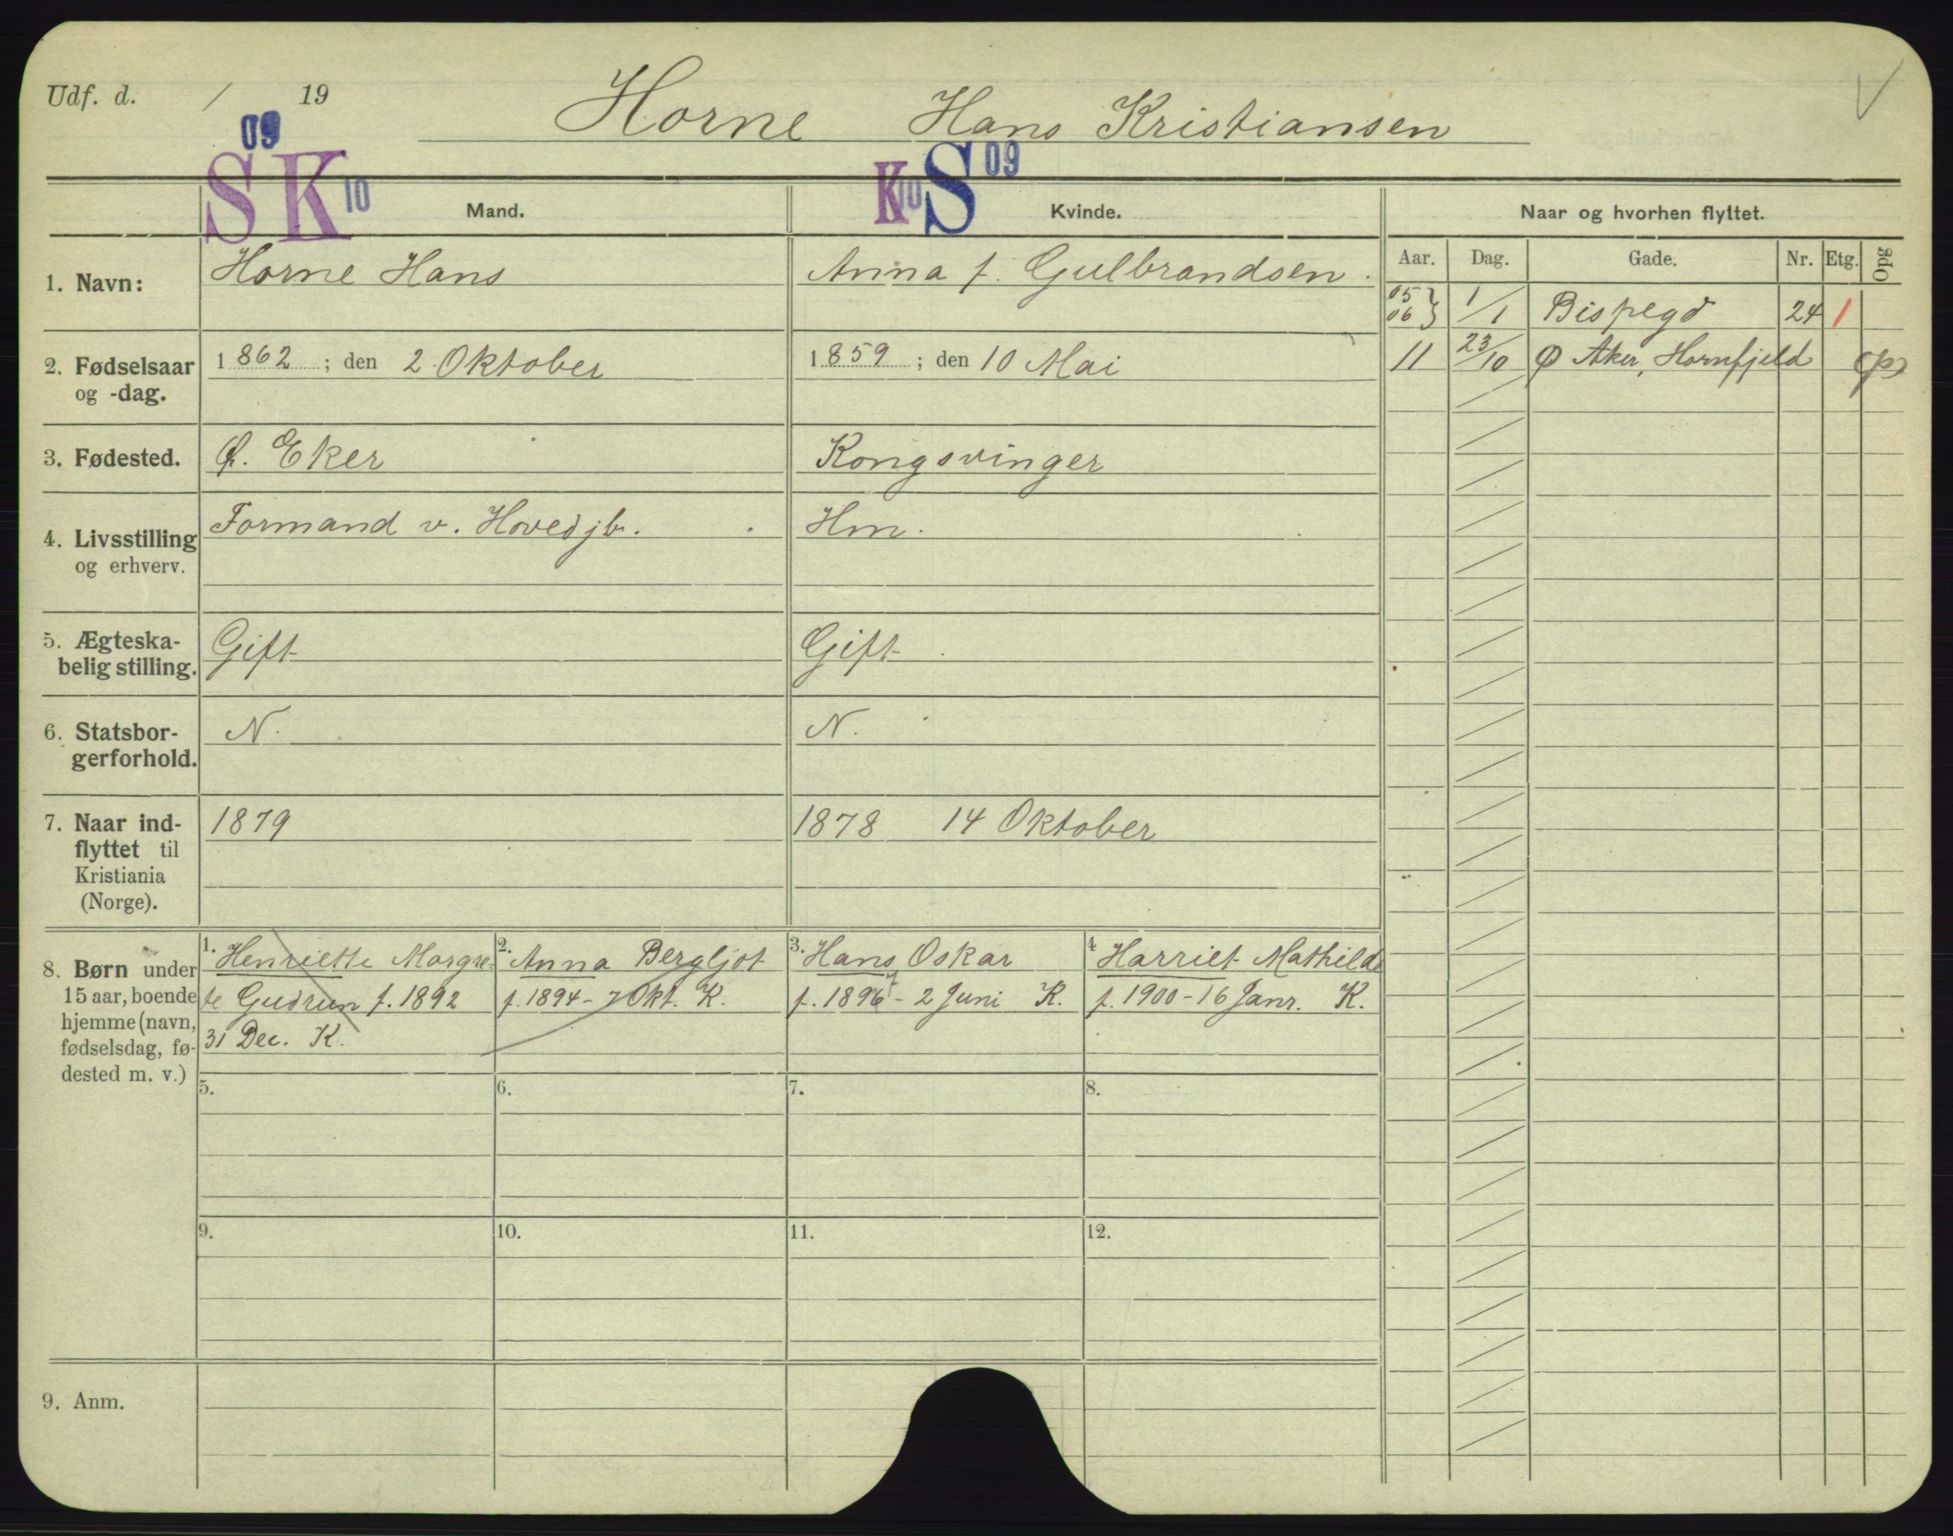 Udf. d. / 19
Horne Hans Kristiansen
09
SK 10
K 10 S 09
Mand.
Kvinde.
Naar og hvorhen flyttet.
Aar. Dag. Gade. Nr. Etg. Opg
1. Navn:
Horne Hans
Anna f. Gulbrandsen.
05
06 } 1/1 Bispegd 24 1
11 23/10 Ø Aker, Hornfjeld (p)
2. Fødselsaar
og -dag.
1862; den 2 Oktober
1859; den 10 Mai
3. Fødested.
Ø. Eker
Kongsvinger
4. Livsstilling
og erhverv.
Formand v. Hovedjb.
Hm.
5. Ægteska-
belig stilling.
Gift
Gift
6. Statsbor-
gerforhold.
N.
N.
7. Naar ind-
flyttet til
Kristiania
(Norge).
1879
1878 14 Oktober
8. Børn under
15 aar, boende
hjemme (navn,
fødselsdag, fø-
dested m. v.)
1. Henriette Margre-
te Gudrun f. 1892
31 Dec. K.
2. Anna Bergljot
f. 1894 - 7 Okt. K.
3. Hans Oskar
f. 1896 7 - 2 Juni K.
4 Harriet Mathilde
f. 1900 - 16 Janr. K.
5.
6.
7.
8.
9.
10.
11.
12.
9. Anm.